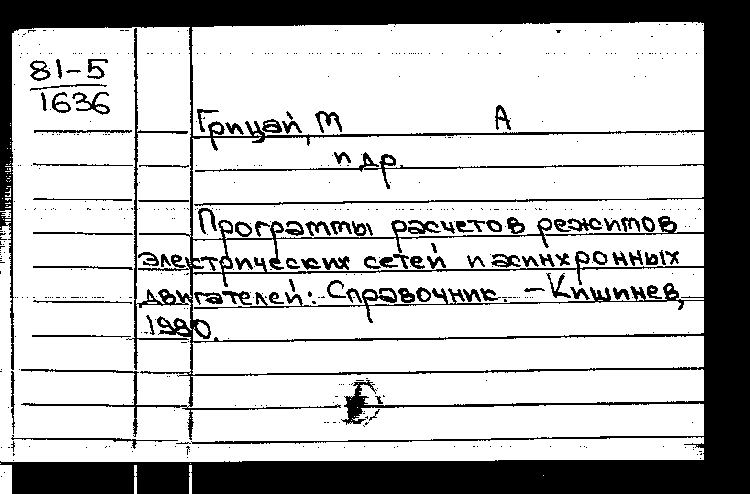 81-5
1636
Грицай, М А
и др.
Программы расчетов режимов
электрических сетей и асинхронных
двигателей: Справочник. - Кишинев,
1980.